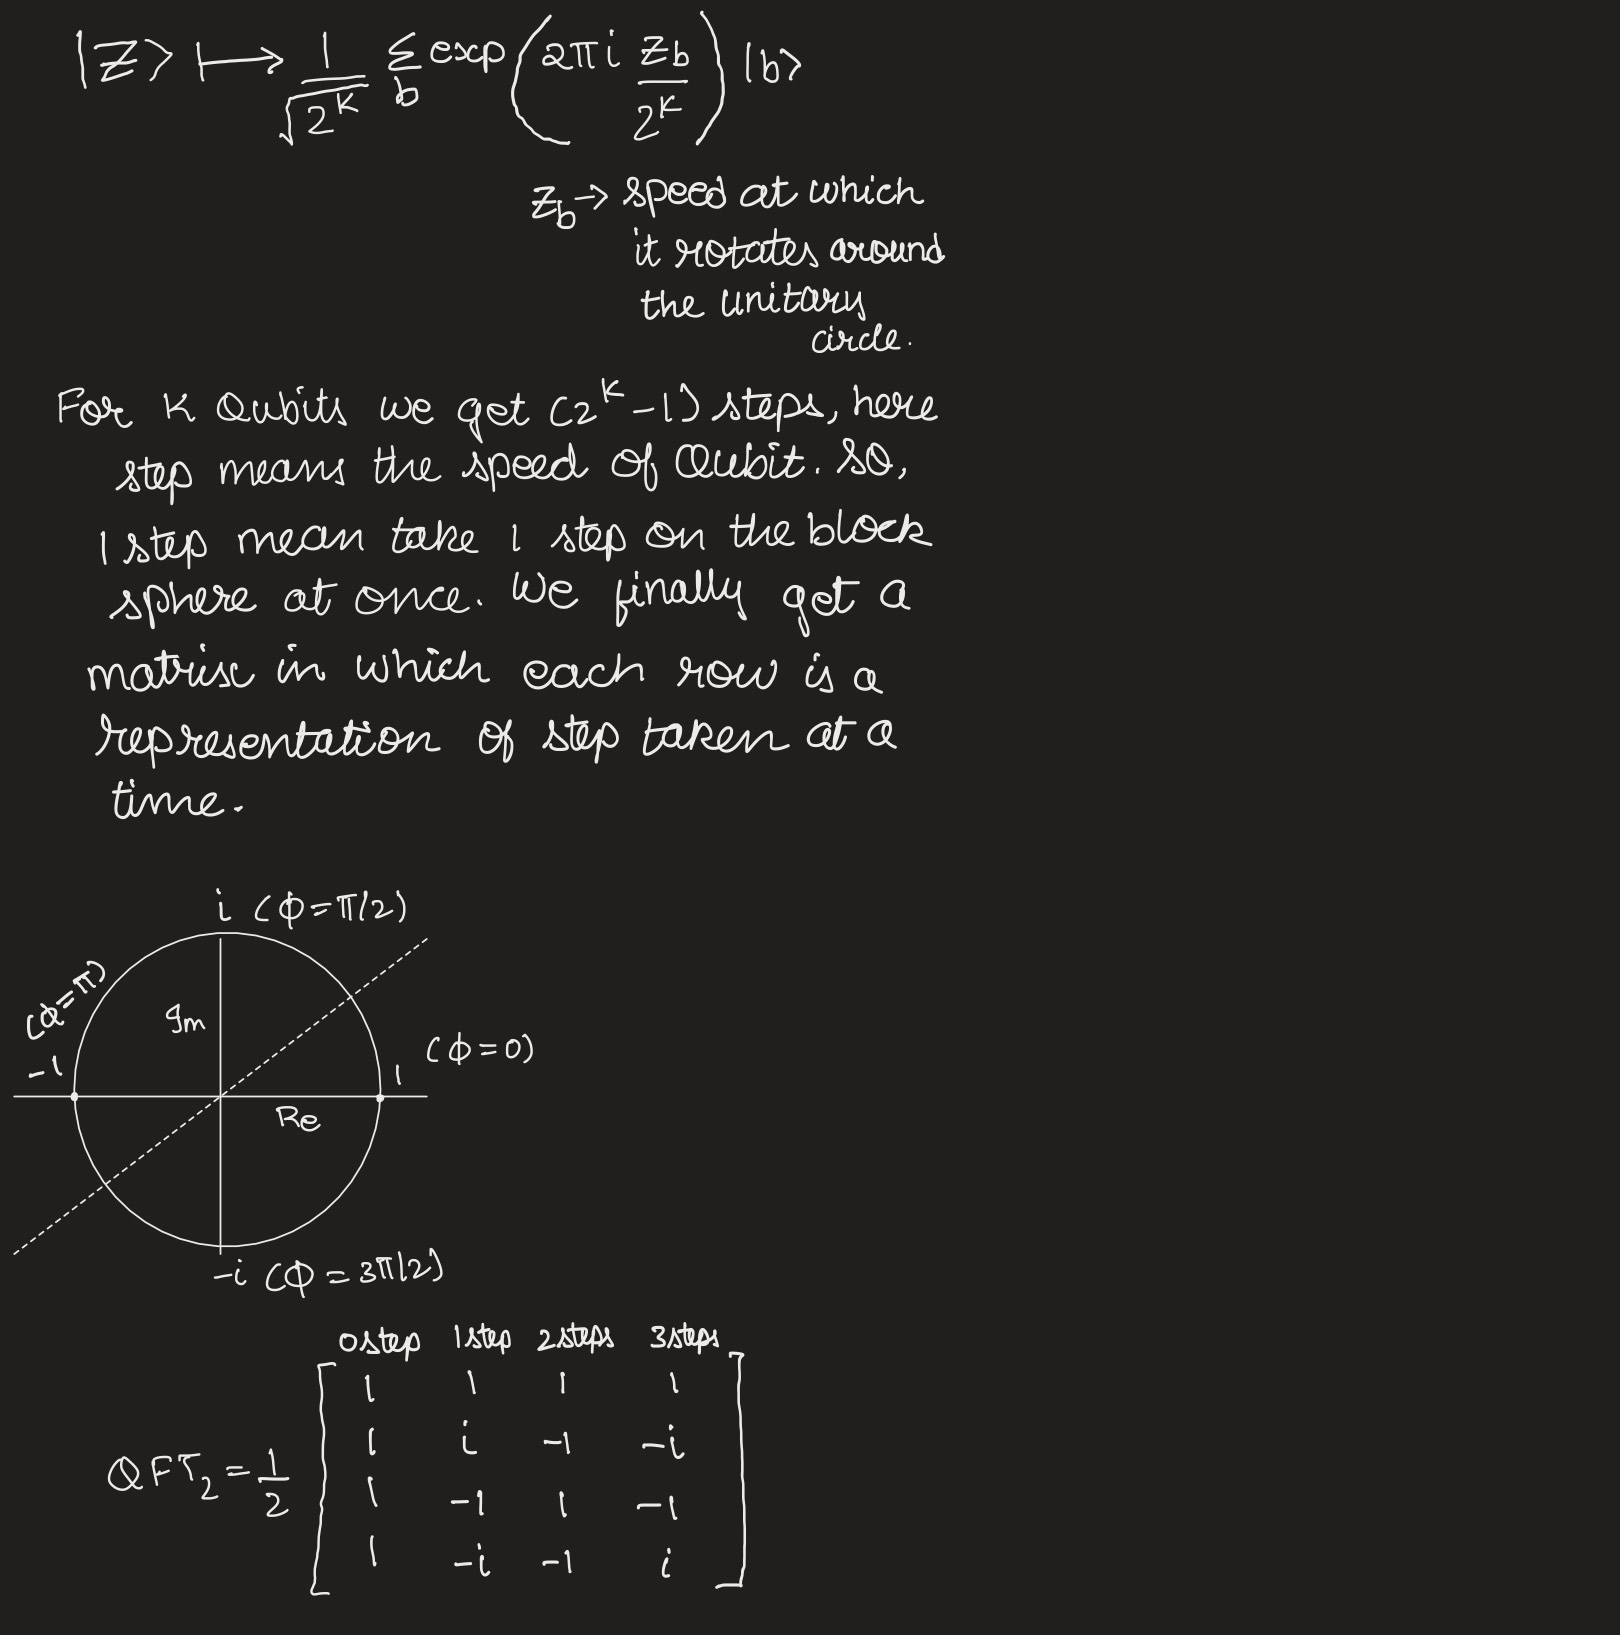 |Z⟩ ⟼ 1/√2^K Σ_b exp(2πi zb/2^K) |b⟩
z_b → speed at which
it rotates around
the unitary
circle.
For K Qubits we get (2^K -1) steps, here
step means the speed of Qubit. So,
1 step mean take 1 step on the block
sphere at once. We finally get a
matrix in which each row is a
representation of step taken at a
time.
i (ϕ=π/2)
(ϕ=π)
Im
-1
1 (ϕ=0)
Re
-i (ϕ=3π/2)
0step 1step 2steps 3steps
1 1 1 1
1 i -1 -i
QFT_2 = 1/2
1 -1 1 -1
1 -i -1 i